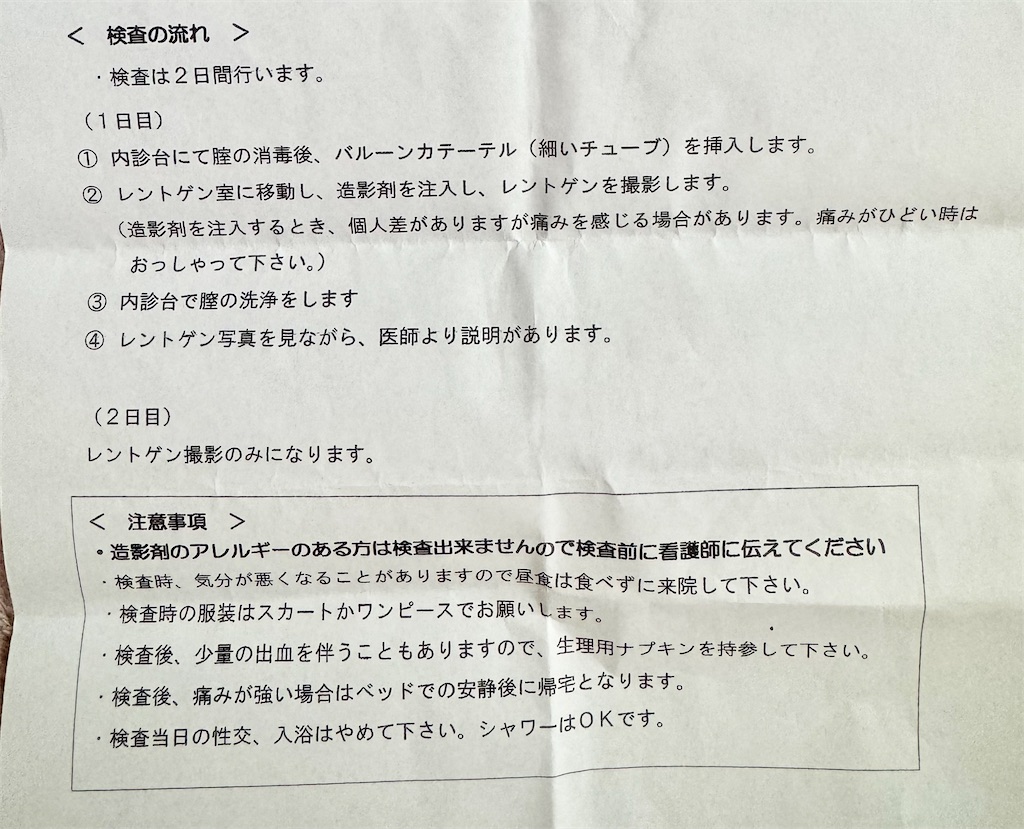 ＜　検査の流れ　＞
・検査は２日間行います。
（１日目）
① 内診台にて膣の消毒後、バルーンカテーテル（細いチューブ）を挿入します。
② レントゲン室に移動し、造影剤を注入し、レントゲンを撮影します。
（造影剤を注入するとき、個人差がありますが痛みを感じる場合があります。痛みがひどい時は
おっしゃって下さい。）
③ 内診台で膣の洗浄をします
④ レントゲン写真を見ながら、医師より説明があります。
（２日目）
レントゲン撮影のみになります。
＜　注意事項　＞
・造影剤のアレルギーのある方は検査出来ませんので検査前に看護師に伝えてください
・検査時、気分が悪くなることがありますので昼食は食べずに来院して下さい。
・検査時の服装はスカートかワンピースでお願いします。
・検査後、少量の出血を伴うこともありますので、生理用ナプキンを持参して下さい。
・検査後、痛みが強い場合はベッドでの安静後に帰宅となります。
・検査当日の性交、入浴はやめて下さい。シャワーはＯＫです。